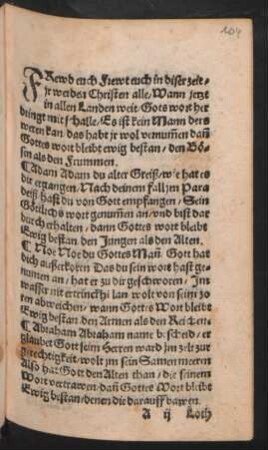 104
FRewd euch Frewt euch in diser zeit /
jr werden Christen alle / Wann jetzt
in allen Landen weit Gots wort her
dringt mit schalle / Es ist kein Mann ders
weren kan das habt jr wol vernum̄en dañ
Gottes wort bleibt ewig bestan / den Bö-
sen als den Frummen.
¶ Adam Adam du alter Greiß / wie hat es
dir ergangen / Nach deinem fall im Para
deiß hast du von Gott empfangen / Sein
Göttlichs wort genum̄en an / vnd bist dar
durch erhalten / dann Gottes wort bleibt
Ewig bestan den Jungen als den Alten.
¶ Noe Noe du Gottes Mañ Gott hat
dich ausserkorn Das du sein wort hast ge-
numen an / hat er zu dir geschworen / Im
wasser nit ertrincken lan wolt von seim zo
ren abweichen / wann Gottes Wort bleibt
Ewig bestan den Armen als den Reichen.
¶ Abraham Abraham name bescheid / er
glaubet Gott seim Herren ward jm zelt zur
gerechtigkeit / wolt jm sein Samen meeren
Also hat Gott den Alten than / die seinem
Wort vertrawen / dañ Gottes Wort bleibt
Ewig bestan / denen die darauff bawen.
A ij Loth